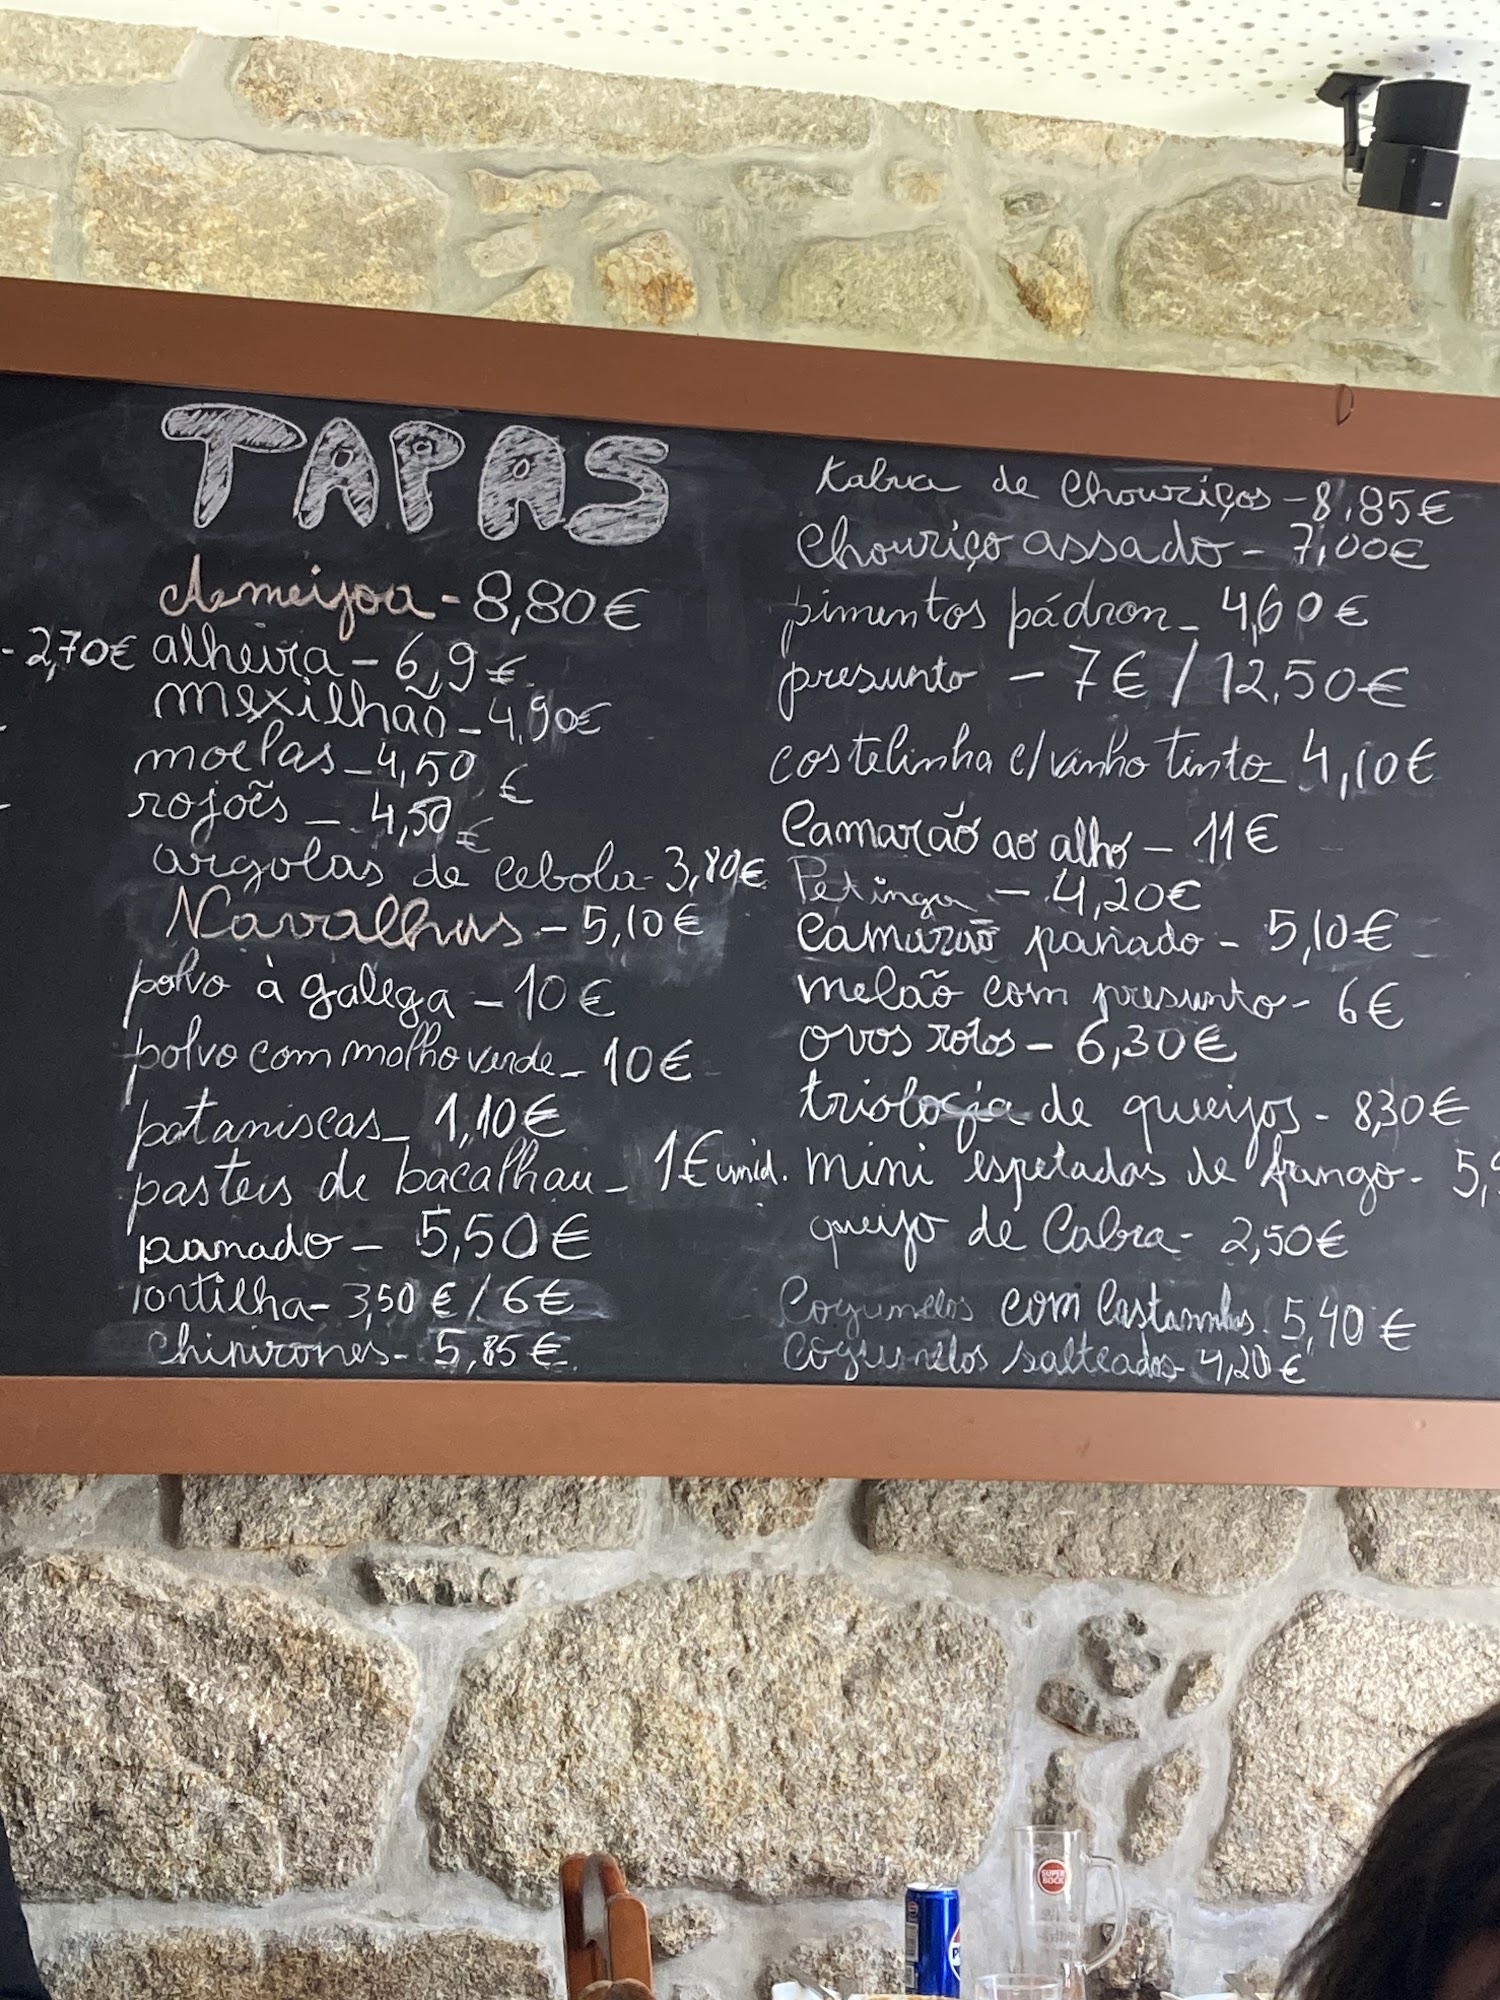 TAPAS
Ameijoa - 8,80€
- 2,70€
alheira - 6,9€
mexilhão - 4,90€
moelas - 4,50€
rojões - 4,50€
argolas de cebola - 3,80€
Navalhas - 5,10€
polvo à galega - 10€
polvo com molho verde - 10€
pataniscas - 1,10€
pasteis de bacalhau - 1€ unid.
panado - 5,50€
tortilha - 3,50€ / 6€
chipirones - 5,85€
Kabra de Chouriços - 8,85€
Chouriço assado - 7,00€
pimentos pádron - 4,60€
presunto - 7€ / 12,50€
costelinha c/ vinho tinto - 4,10€
Camarão ao alho - 11€
Petinga - 4,20€
Camarão panado - 5,10€
melão com presunto - 6€
ovos rotos - 6,30€
triologia de queijos - 8,30€
mini espetadas de frango - 5,
queijo de Cabra - 2,50€
Cogumelos com Castanhas 5,40€
Cogumelos salteados - 4,20€
SUPER
BOCK